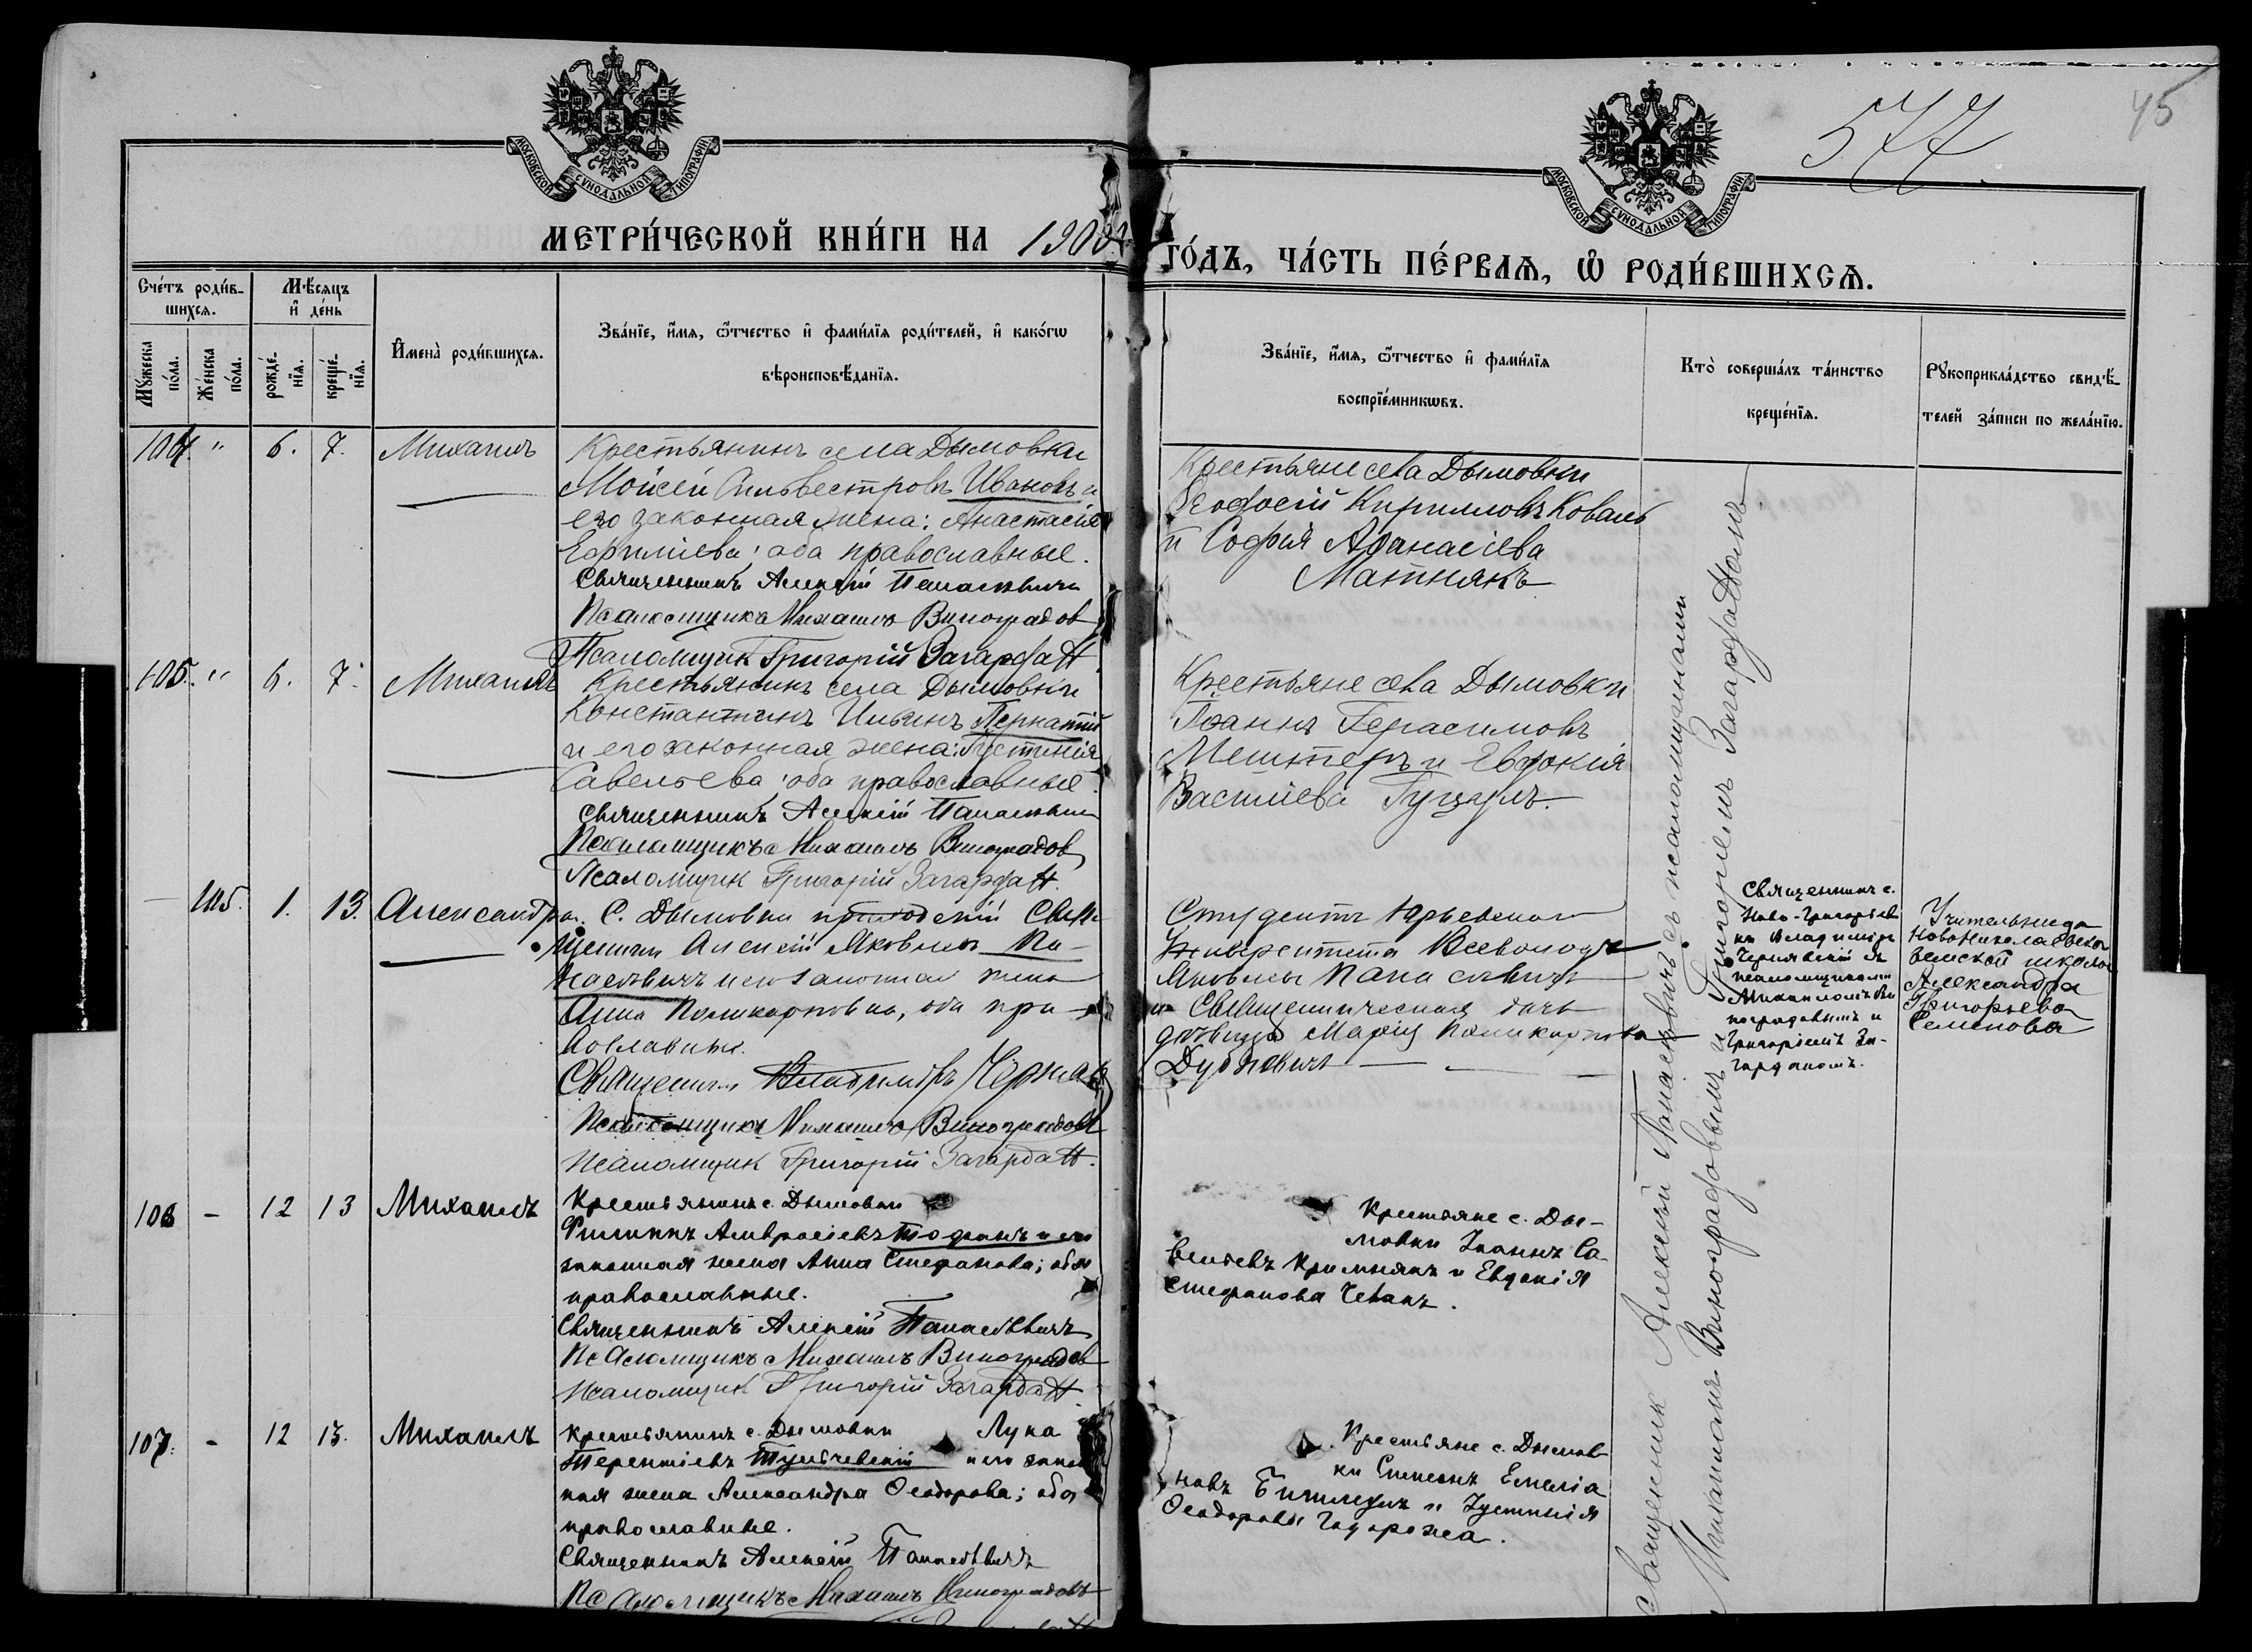 577
45
МОСКОВСКОЙ СУНОДАЛЬНОЙ ТИПОГРАФІИ
МОСКОВСКОЙ СУНОДАЛЬНОЙ ТИПОГРАФІИ
МЕТРИ́ЧЕСКОЙ КНИ́ГИ НА
ГО́ДЪ, ЧА́СТЬ ПЕ́РВАѦ, Ѡ РОДИ́ВШИХСѦ.
Счéтъ роди́в-
шихсѧ.
Мꙋ́жеска
по́ла.
Же́нска
по́ла.
Мѣ́сѧцъ
и̂ де́нь
рожде́-
нїѧ.
креще́-
нїѧ.
И̂мена̀ роди́вшихсѧ.
Зва́нїе, и̂́мѧ, ѿтчество и̂ фами́лїѧ роди́телей, и̂ како́гѡ
вѣроисповѣ́данїѧ.
Зва́нїе, и̂́мѧ, ѿтчество и̂ фами́лїѧ
воспрїе́мникѡвъ.
Кто̀ соверша́лъ та́инство
креще́нїѧ.
Рꙋкоприкла́дство свидѣ́-
телей за́писи по жела́нїю.
104. " 6. 7. Михаилъ
Крестьянинъ села Дымовки
Мойсей Сильвестровъ Ивановъ и
его законная жена: Анастасія
оба православные.
Священникъ Алексій Панасевичъ
Псаломщикъ Михаилъ Виноградов
Псаломщик Григорій Загардан
Крестьяне села Дымовки
Ѳеодосій Кирилловъ Коваль
и Софія Аѳанасіева
Матнякъ
105. " 6. 7. Михаилъ
Крестьянинъ села Дымовки
Константинъ Ильинъ Пернатій
и его законная жена: Густинія
Савельева; оба православные.
Священникъ Алексій Панасевичъ
Псаломщикъ Михаилъ Виноградов
Псаломщик Григорій Загардан.
Крестьяне села Дымовки
Іоаннъ Герасимовъ
Мештеръ и Евдокія
Василіева Гуцулъ.
— 105. 1. 13. Александра.
С. Дымовки приходскій Свя-
щенникъ Алексій Яковлевъ Па-
насевичъ и его законная жена
Анна Поликарповна, оба пра-
вославные.
Священникъ Владиміръ
Псаломщикъ Михаилъ Виноградовъ
Псаломщик Григорій Загардан.
Студентъ Юрьевскаго
Университета Всеволодъ
Яковлевъ Панасевичъ
и Священническая дочь
дѣвица Марія Поликарпова
Дубневичъ
Священникъ с.
Ново-Григорьев
ки Владиміръ
Чернявскій съ
псаломщиками
Михаиломъ Ви
ноградовымъ и
Григоріемъ За-
гарданомъ.
Учительница
земской школы
Александра
Григорьева
Семенова
106 - 12 13 Михаилъ
Крестьянинъ с. Дымовки
Филиппъ Амвросіевъ Тофанъ и его
законная жена Анна Стефанова; оба
православные.
Священникъ Алексій Панасевичъ
Псаломщикъ Михаилъ Виноградов
Псаломщик Григорій Загардан
Крестьяне с. Ды-
мовки Іоаннъ Са-
вельевъ и Евдокія
Стефанова Чебанъ.
107. - 12 13. Михаилъ
Крестьянинъ с. Дымовки Лука
Терентіевъ Тульчевскій и его закон
ная жена Александра Ѳеодорова; оба
православные.
Священникъ Алексій Панасевичъ
Псаломщикъ Михаилъ Виноградовъ
Крестьяне с. Дымов
ки Симеонъ Емеліа
новъ и Іустинія
Ѳеодорова
Священник Алексій Панасевичъ съ псаломщиками
Михаиломъ Виноградовымъ и Григоріемъ Загарданомъ